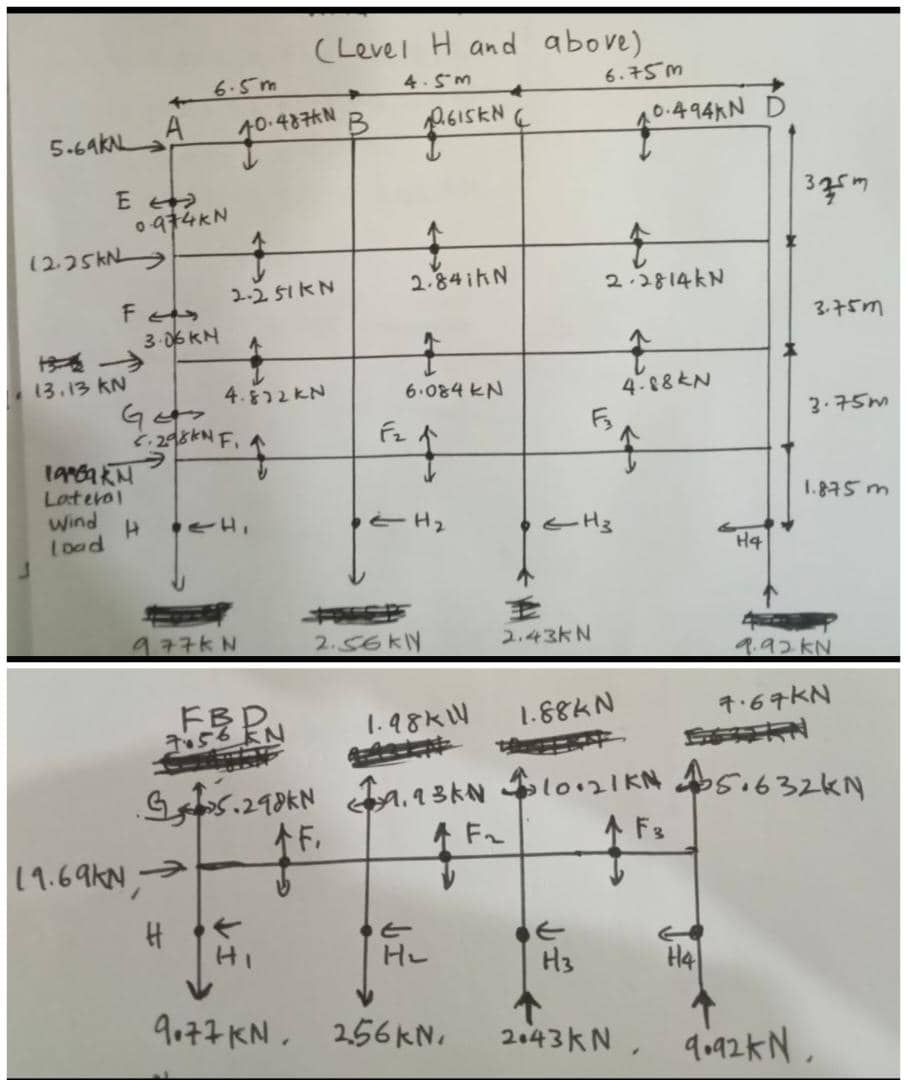 (Level H and above)
6.5m 4.5m 6.75m
A 0.487kN B 0.615kN C 0.494kN D
5.69kN
E
0.974kN
3.75m
12.25kN
2.251kN 2.841kN 2.2814kN
F
3.06kN
3.75m
13.13 kN
4.822kN 6.084kN 4.88kN
G
5.298kN F1 F2 F3
3.75m
Lateral
Wind
load
H H1 H2 H3 H4
1.875m
9.77kN 2.56kN 2.43kN 9.92kN
FBD
7.56 kN 1.98kN 1.88kN 7.67kN
G 5.298kN 9.93kN 10.21KN 5.632kN
F1 F2 F3
19.69kN,
H H1 H2 H3 H4
9.77KN. 2.56KN. 2.43KN. 9.92KN.